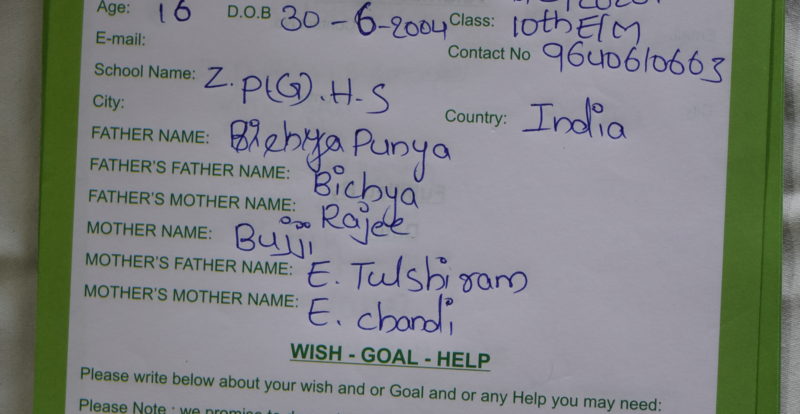 Age: 16 D.O.B 30-6-2004 Class: 10th E/M
E-mail: Contact No 9640610663
School Name: Z.P(G).H.S
City: Country: India
FATHER NAME: Bichya Punya
FATHER'S FATHER NAME: Bichya
FATHER'S MOTHER NAME: Rajee
MOTHER NAME: Bujji
MOTHER'S FATHER NAME: E. Tulshiram
MOTHER'S MOTHER NAME: E. chandi
WISH - GOAL - HELP
Please write below about your wish and or Goal and or any Help you may need:
Please Note : we promise to